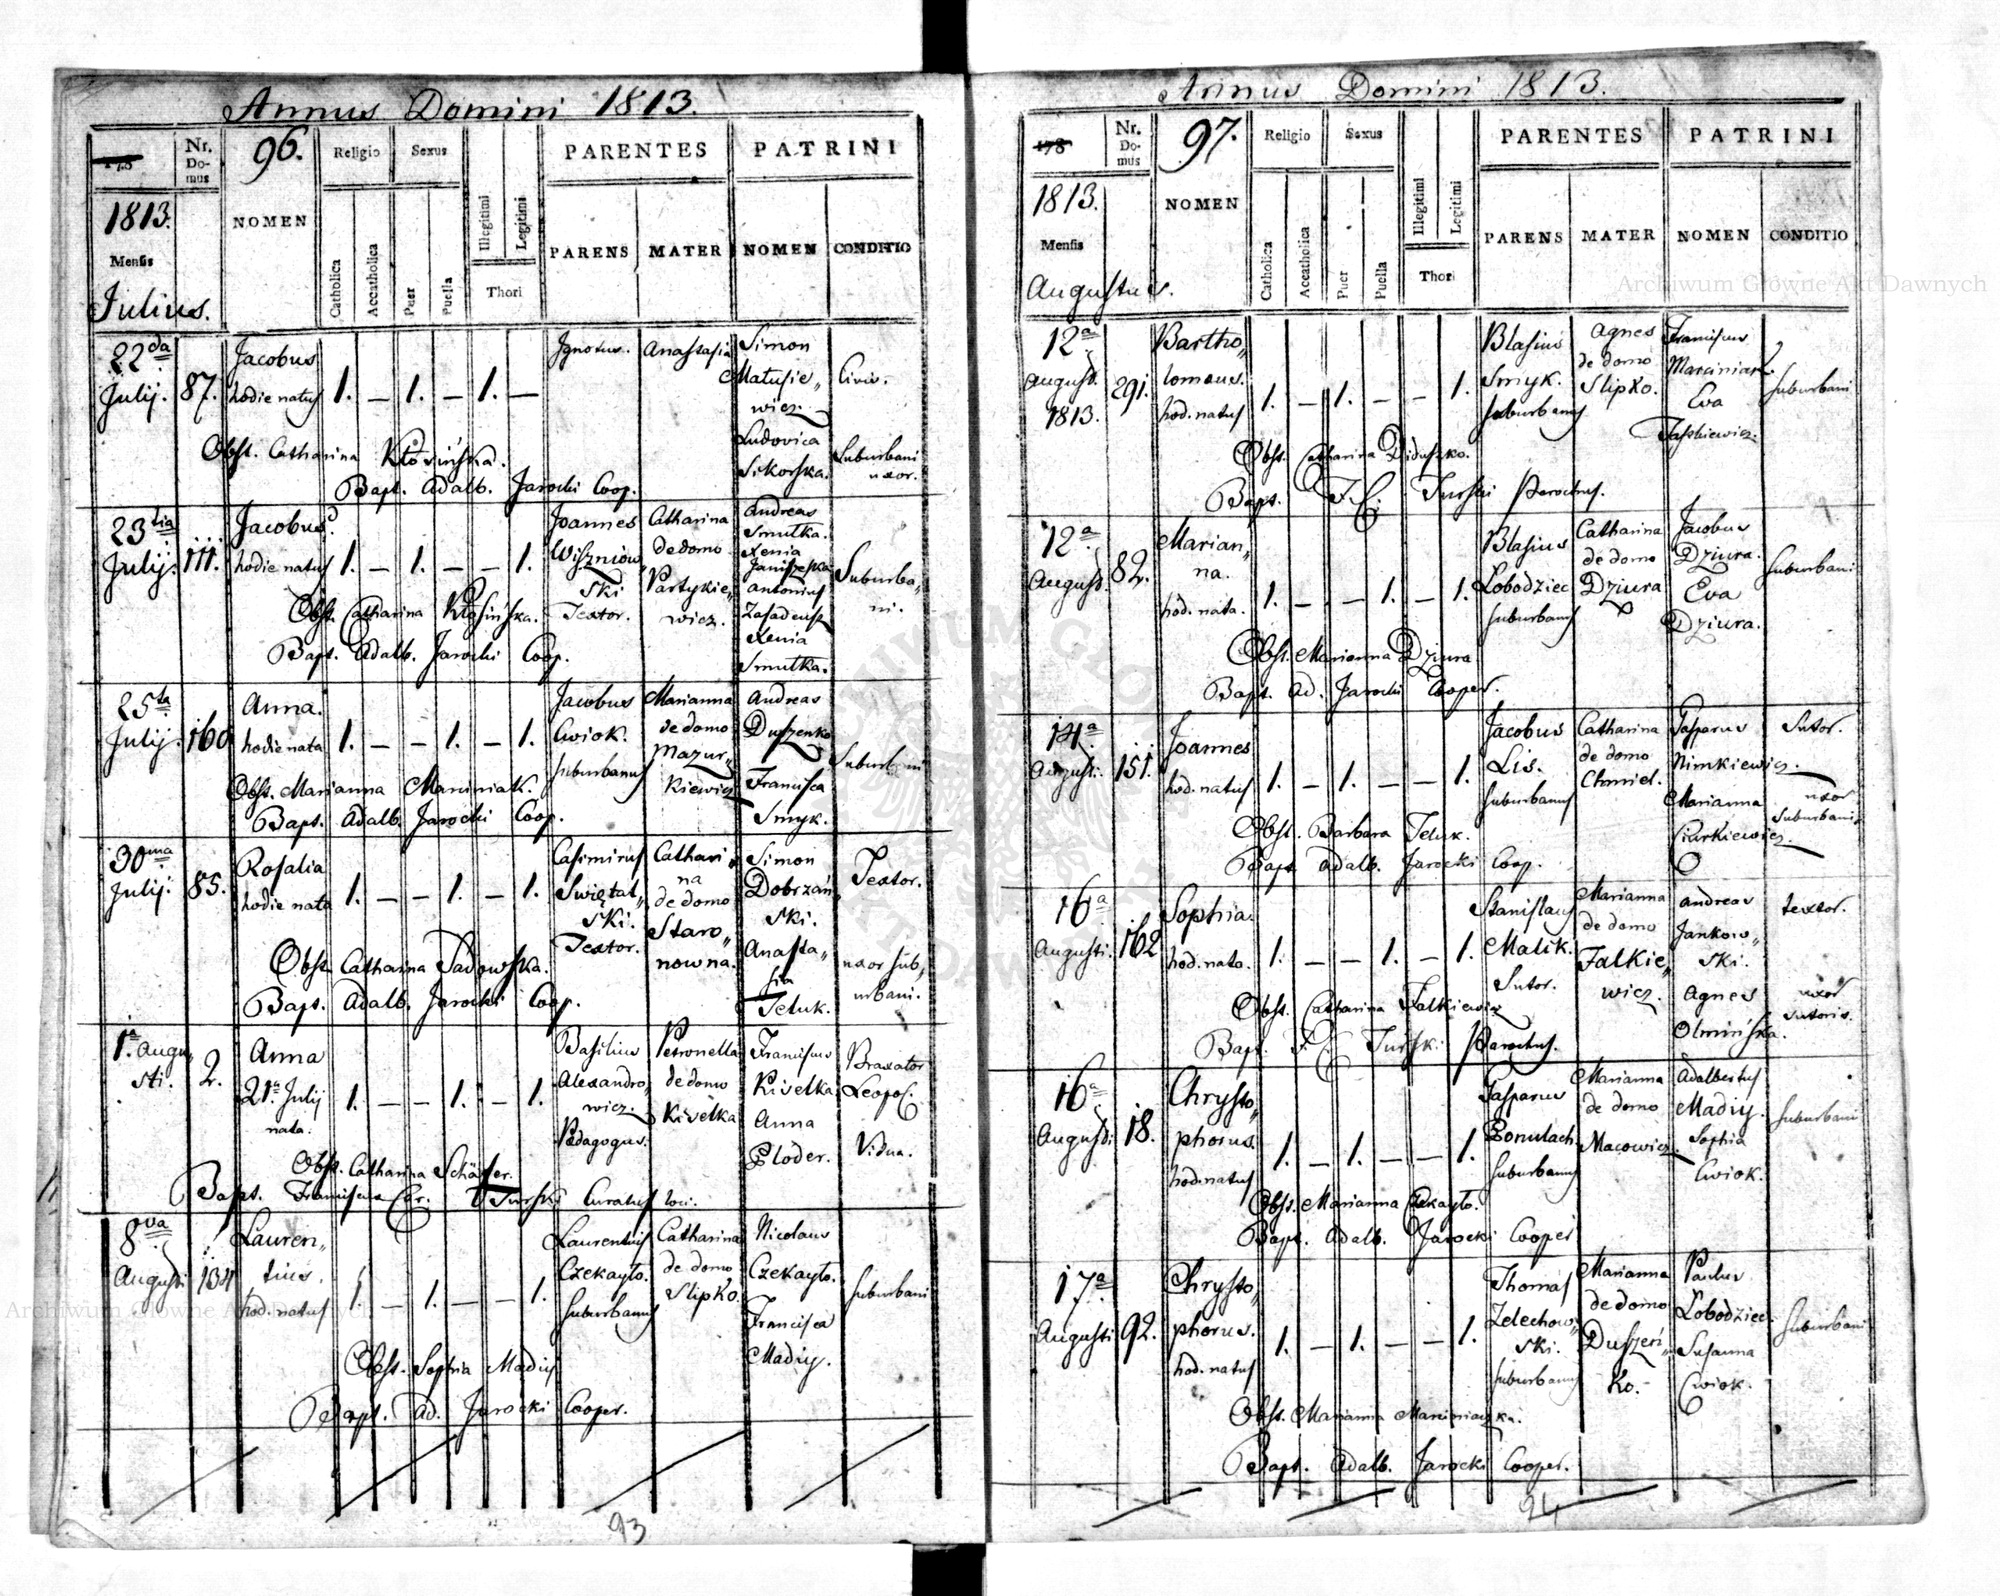 Annus Domini 1813.
178
Nr. Domus
96.
Religio
Sexus
PARENTES
PATRINI
1813.
Mensis
Julius.
NOMEN
Catholica
Accatholica
Puer
Puella
Illegitimi
Legitimi
Thori
PARENS
MATER
NOMEN
CONDITIO
22da Julij.
87.
Jacobus
hodie natus
1. — 1. — 1. —
Ignotus.
Anastasia
Simon
Matusie„
wicz.
Civis.
Ludovica
Sikorska.
Suburbani
uxor.
Obst. Catharina Kłosińska.
Bapt. Adalb. Jarocki Coop.
23tia Julij.
111.
Jacobus
hodie natus
1. — 1. — — 1.
Joannes
Wiszniow„
ski
Textor.
Catharina
de domo
Partykie„
wicz.
Andreas
Smutka.
Xenia
Janiszeska
Antonius
Zasadeusz
Xenia
Smutka.
Suburba„
ni.
Obst. Catharina Kłosińska.
Bapt. Adalb. Jarocki Coop.
25ta Julij.
160
Anna.
hodie nata
1. — — 1. — 1.
Jacobus
Cwiok.
suburbanus
Marianna
de domo
Mazur„
kiewicz
Andreas
Duszenko
Francisca
Smyk.
Suburbani
Obst. Marianna Marciniak.
Bapt. Adalb. Jarocki Coop.
30ma Julij.
85.
Rosalia
hodie nata
1. — — 1. — 1.
Casimirus
Świętal„
ski.
Textor.
Cathari„
na
de domo
Staro„
nowna.
Simon
Dobrzań„
ski.
Anasta„
sia
Tetuk.
Textor.
uxor sub„
urbani.
Obst. Catharina Sadowska.
Bapt. Adalb. Jarocki Coop.
1a Augu„
sti.
2.
Anna
21a Julij
nata.
1. — — 1. — 1.
Basilius
Alexandro„
wicz.
Pædagogus.
Petronella
de domo
Kisielka
Franciscus
Kisielka
Anna
Ploder.
Braxator
Leopol.
Vidua.
Obst. Catharina Schäffer.
Bapt. Franciscus Cor. Turski Curatus loci.
8va Augusti
134
Lauren„
tius.
hod. natus
1. — 1. — — 1.
Laurentius
Czekayło.
suburbanus
Catharina
de domo
Slipko.
Nicolaus
Czekayło.
Francisca
Madiy.
suburbani
Obst. Sophia Madiy
Bapt. Ad. Jarocki Cooper.
93
Annus Domini 1813.
178
Nr. Domus
97.
Religio
Sexus
PARENTES
PATRINI
1813.
Mensis
Augustus.
NOMEN
Catholica
Accatholica
Puer
Puella
Illegitimi
Legitimi
Thori
PARENS
MATER
NOMEN
CONDITIO
12a
August.
1813.
291.
Bartho„
lomæus.
hod. natus
1. — 1. — — 1.
Blasius
Smyk.
suburbanus
Agnes
de domo
Slipko.
Franciscus
Marciniak.
Eva
Jaskiewicz.
suburbani
Obst. Catharina Diduszko.
Bapt. F. C. Turski Parochus.
12a
August.
82.
Marian„
na.
hod. nata.
1. — — 1. — 1.
Blasius
Łobodziec
suburbanus
Catharina
de domo
Dziura
Jacobus
Dziura.
Eva
Dziura.
suburbani
Obst. Marianna Dziura
Bapt. Ad. Jarocki Cooper.
14a
Augusti.
151.
Joannes
hod. natus
1. — 1. — — 1.
Jacobus
Lis.
suburbanus
Catharina
de domo
Chmiel.
Gasparus
Nimkiewicz.
Marianna
Ciurkiewicz.
Sutor.
uxor
suburbani.
Obst. Barbara Tetuk.
Bapt. Adalb. Jarocki Coop.
16a
Augusti.
162
Sophia.
hod. nata.
1. — — 1. — 1.
Stanislaus
Malik.
Sutor.
Marianna
de domo
Falkie„
wicz.
Andreas
Jankow„
ski.
Agnes
Olmińska.
textor.
uxor
sutoris.
Obst. Catharina Falkiewicz
Bapt. F. C. Turski Parochus.
16a
Augusti.
18.
Chrysto„
phorus.
hod. natus
1. — 1. — — 1.
Gasparus
Bonulach
suburbanus
Marianna
de domo
Macowicz.
Adalbertus
Madiy.
Sophia
Cwiok.
suburbani
Obst. Marianna Czekayło.
Bapt. Adalb. Jarocki Cooper
17a
Augusti
92.
Chrysto„
phorus.
hod. natus
1. — 1. — — 1.
Thomas
Zelechow„
ski.
suburbanus
Marianna
de domo
Duszeń„
ko.
Paulus
Łobodziec.
Susanna
Cwiok.
suburbani
Obst. Marianna Marciniaczka.
Bapt. Adalb. Jarocki Cooper.
94
Archiwum Główne Akt Dawnych